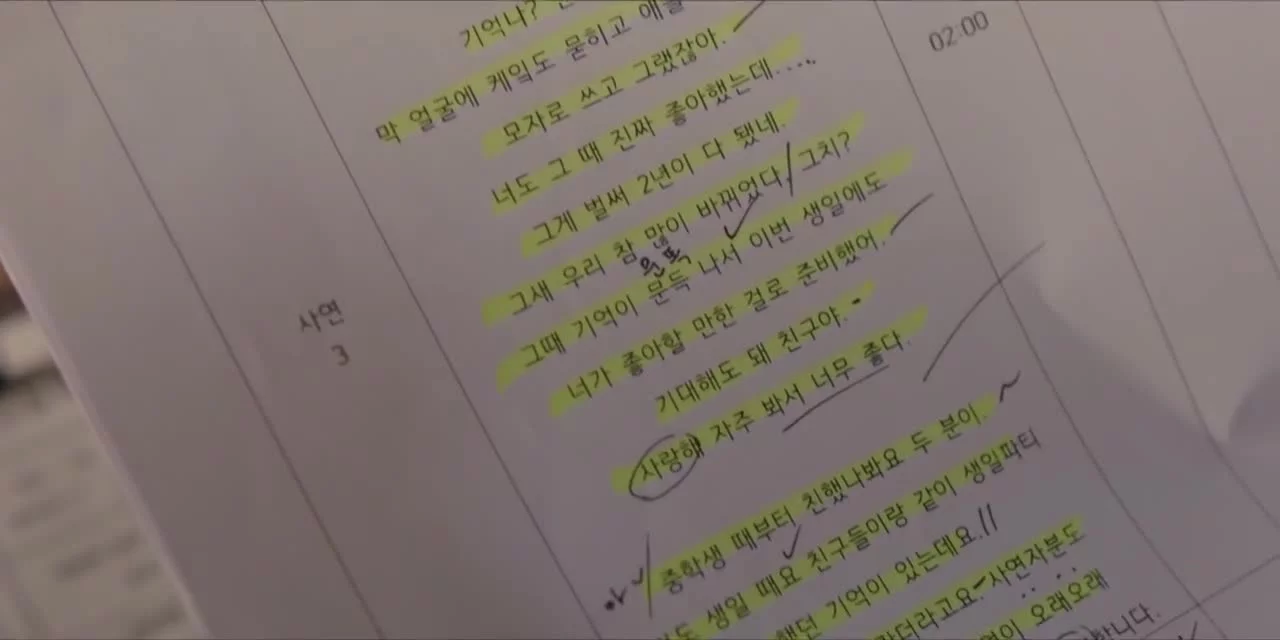 기억나?
막 얼굴에 케익도 묻히고 애들
모자로 쓰고 그랬잖아.
너도 그 때 진짜 좋아했는데....
그게 벌써 2년이 다 됐네.
그새 우리 참 많이 바뀌었다/그치?
그때 기억이 문득 나서 이번 생일에도
너가 좋아할 만한 걸로 준비했어.
기대해도 돼 친구야.
사랑해 자주 봐서 너무 좋다.
중학생 때부터 친했나봐요 두 분이.
생일 때요 친구들이랑 같이 생일파티
했던 기억이 있는데요.
사연자분도
오래오래
사연
3
02:00